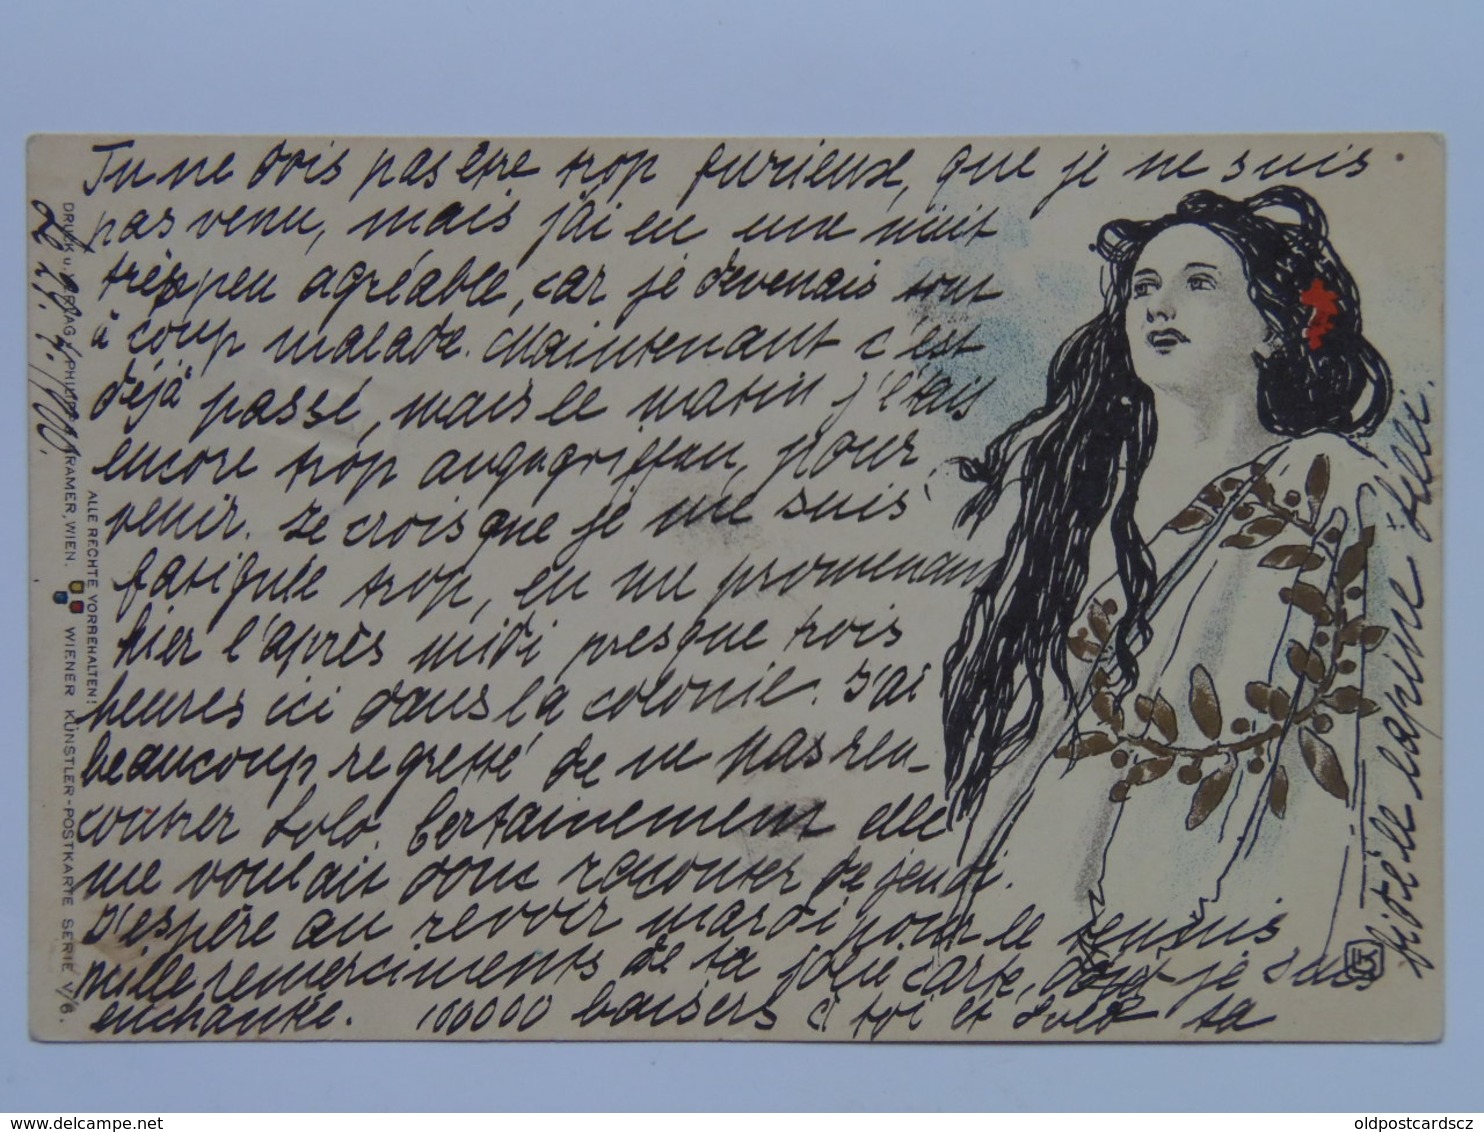 Tu ne dois pas etre trop furieux, que je ne suis
pas venu, mais j'ai eu une nuit
très peu agréable, car je devenais tout
à coup malade. Maintenant c'est
déjà passé, mais le matin j'étais
encore trop angegriffen, pour
venir. Je crois que je me suis
fatiguée trop, en me promenant
hier l'après midi presque trois
heures ici dans la colonie. J'ai
beaucoup regretté de ne pas ren-
contrer Lolo. Certainement elle
me voulait donc raconter de jeudi.
J'espère au revoir mardi pour le tennis
mille remerciments de ta jolie carte, dont je suis
enchantée. 100000 baisers à toi et Lolo ta
fidèle cousine Lilli.
DRUCK u. VERLAG v. PHILIPP & KRAMER, WIEN.
WIENER KÜNSTLER-POSTKARTE SERIE V/6.
ALLE RECHTE VORBEHALTEN!
oldpostcardscz